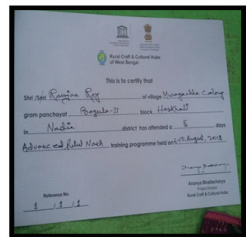 Rural Craft & Cultural Hubs
of West Bengal
This is to certify that
Shri /Smt Ranjan Roy of village Muragachha Colony
gram panchayat Bagula-II block Hanskhali
in Nadia district has attended a 5 days
Advanced Rural Nach training programme held on August, 2018
Ananya Bhattacharya
Project Director
Rural Craft & Cultural Hubs
Reference No.